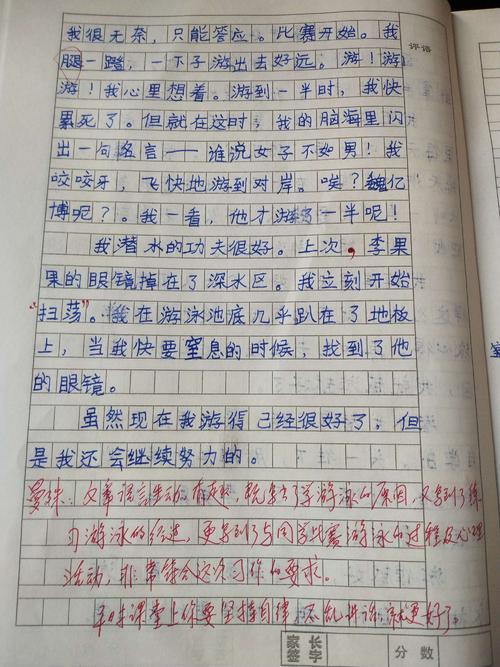 评语
我很无奈，只能答应。比赛开始。我
腿一蹬，一下子游出去好远。游！游
游！我心里想着。游到一半时，我快
累死了。但就在这时，我的脑海里闪
出一句名言——谁说女子不如男！我
咬咬牙，飞快地游到对岸。唉？魏亿
博呢？。我一看，他才游了一半呢！
我潜水的功夫很好。上次，李果
果的眼镜掉在了深水区。我立刻开始
“扫荡”。我在游泳池底几乎趴在了地板
上，当我快要窒息的时候，找到了他
的眼镜。
虽然现在我游得已经很好了。但
是我还会继续努力的。
曼姝：文章语言生动有趣，既写了学游泳的原因，又写到了练
习游泳的经过，更写到了与同学比赛游泳的过程及心理
活动，非常符合这次习作的要求。
平时课堂上你要坚持自律，不乱讲话，就更好了。
家长
签字
分数